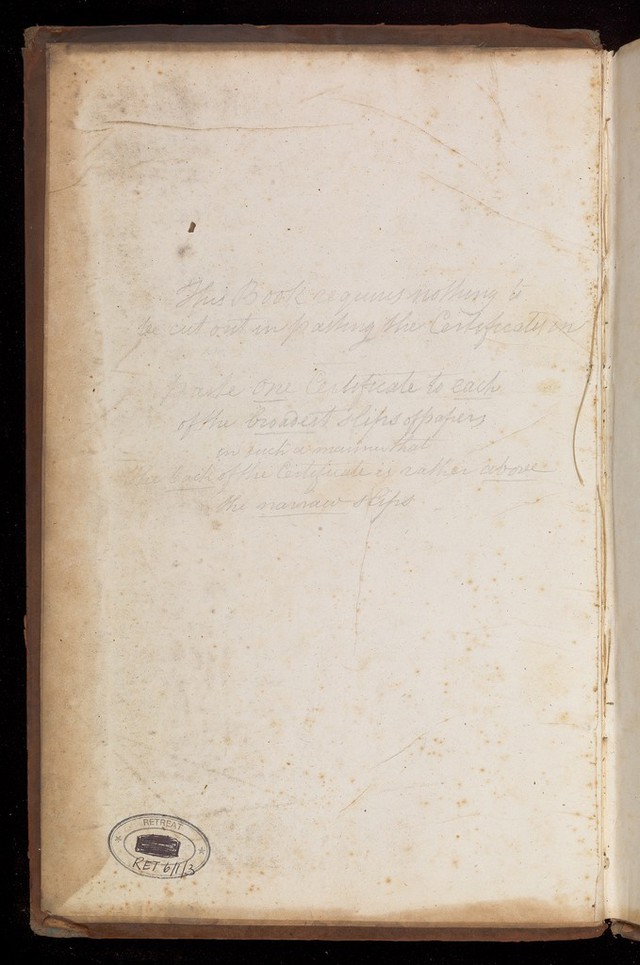 This Book requires nothing to
be cut out in pasting the Certificates in
Paste one Certificate to each
of the broadest slips of paper,
in such a manner that
the back of the Certificate is rather above
the narrow slips
RETREAT
RET 6/1/3